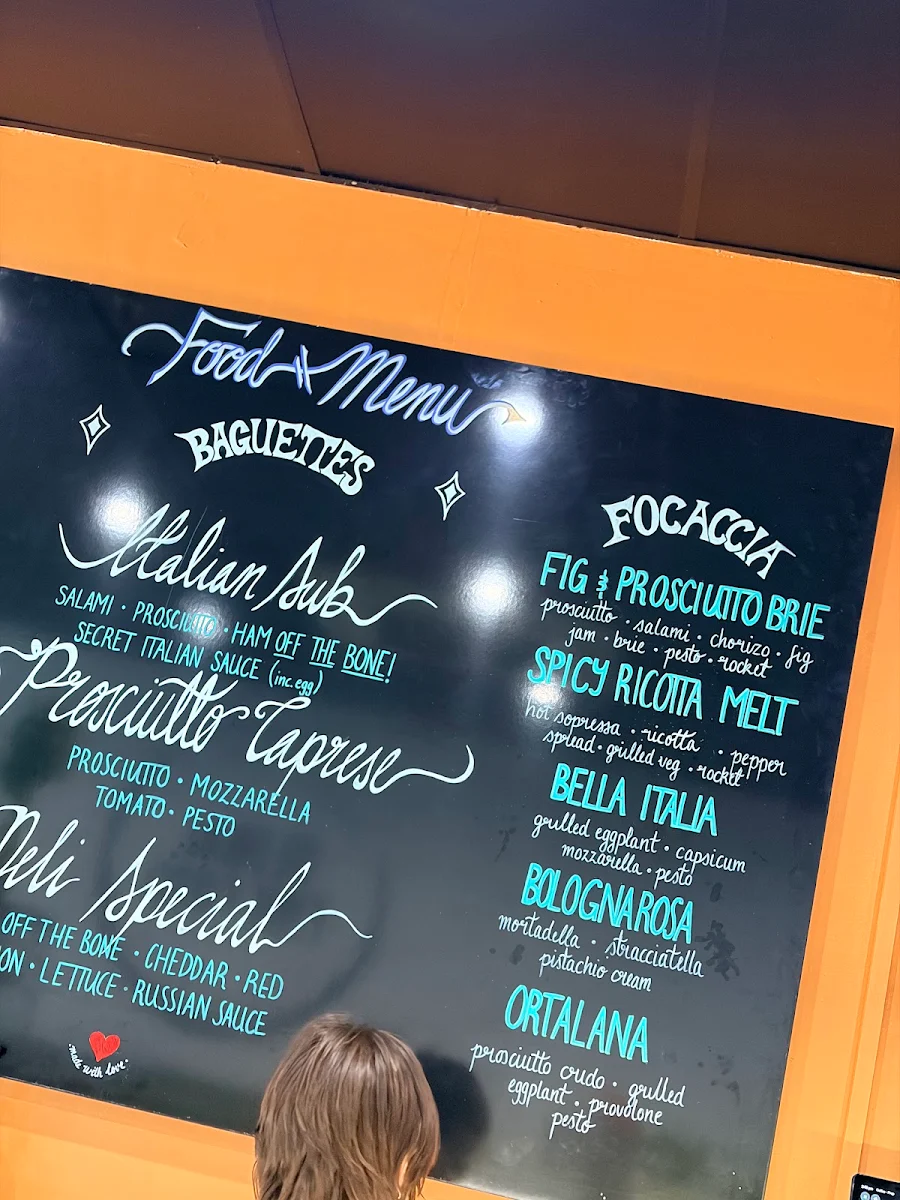 Food Menu
BAGUETTES
Italian Sub
SALAMI · PROSCIUTTO · HAM OFF THE BONE!
SECRET ITALIAN SAUCE (inc. egg)
Prosciutto Caprese
PROSCIUTTO · MOZZARELLA
TOMATO · PESTO
Deli Special
OFF THE BONE · CHEDDAR · RED
ON · LETTUCE · RUSSIAN SAUCE
made with love
FOCACCIA
FIG & PROSCIUTTO BRIE
prosciutto · salami · chorizo · fig
jam · brie · pesto · rocket
SPICY RICOTTA MELT
hot sopressa · ricotta · pepper
spread · grilled veg · rocket
BELLA ITALIA
grilled eggplant · capsicum
mozzarella · pesto
BOLOGNAROSA
mortadella · stracciatella
pistachio cream
ORTALANA
prosciutto crudo · grilled
eggplant · provolone
pesto